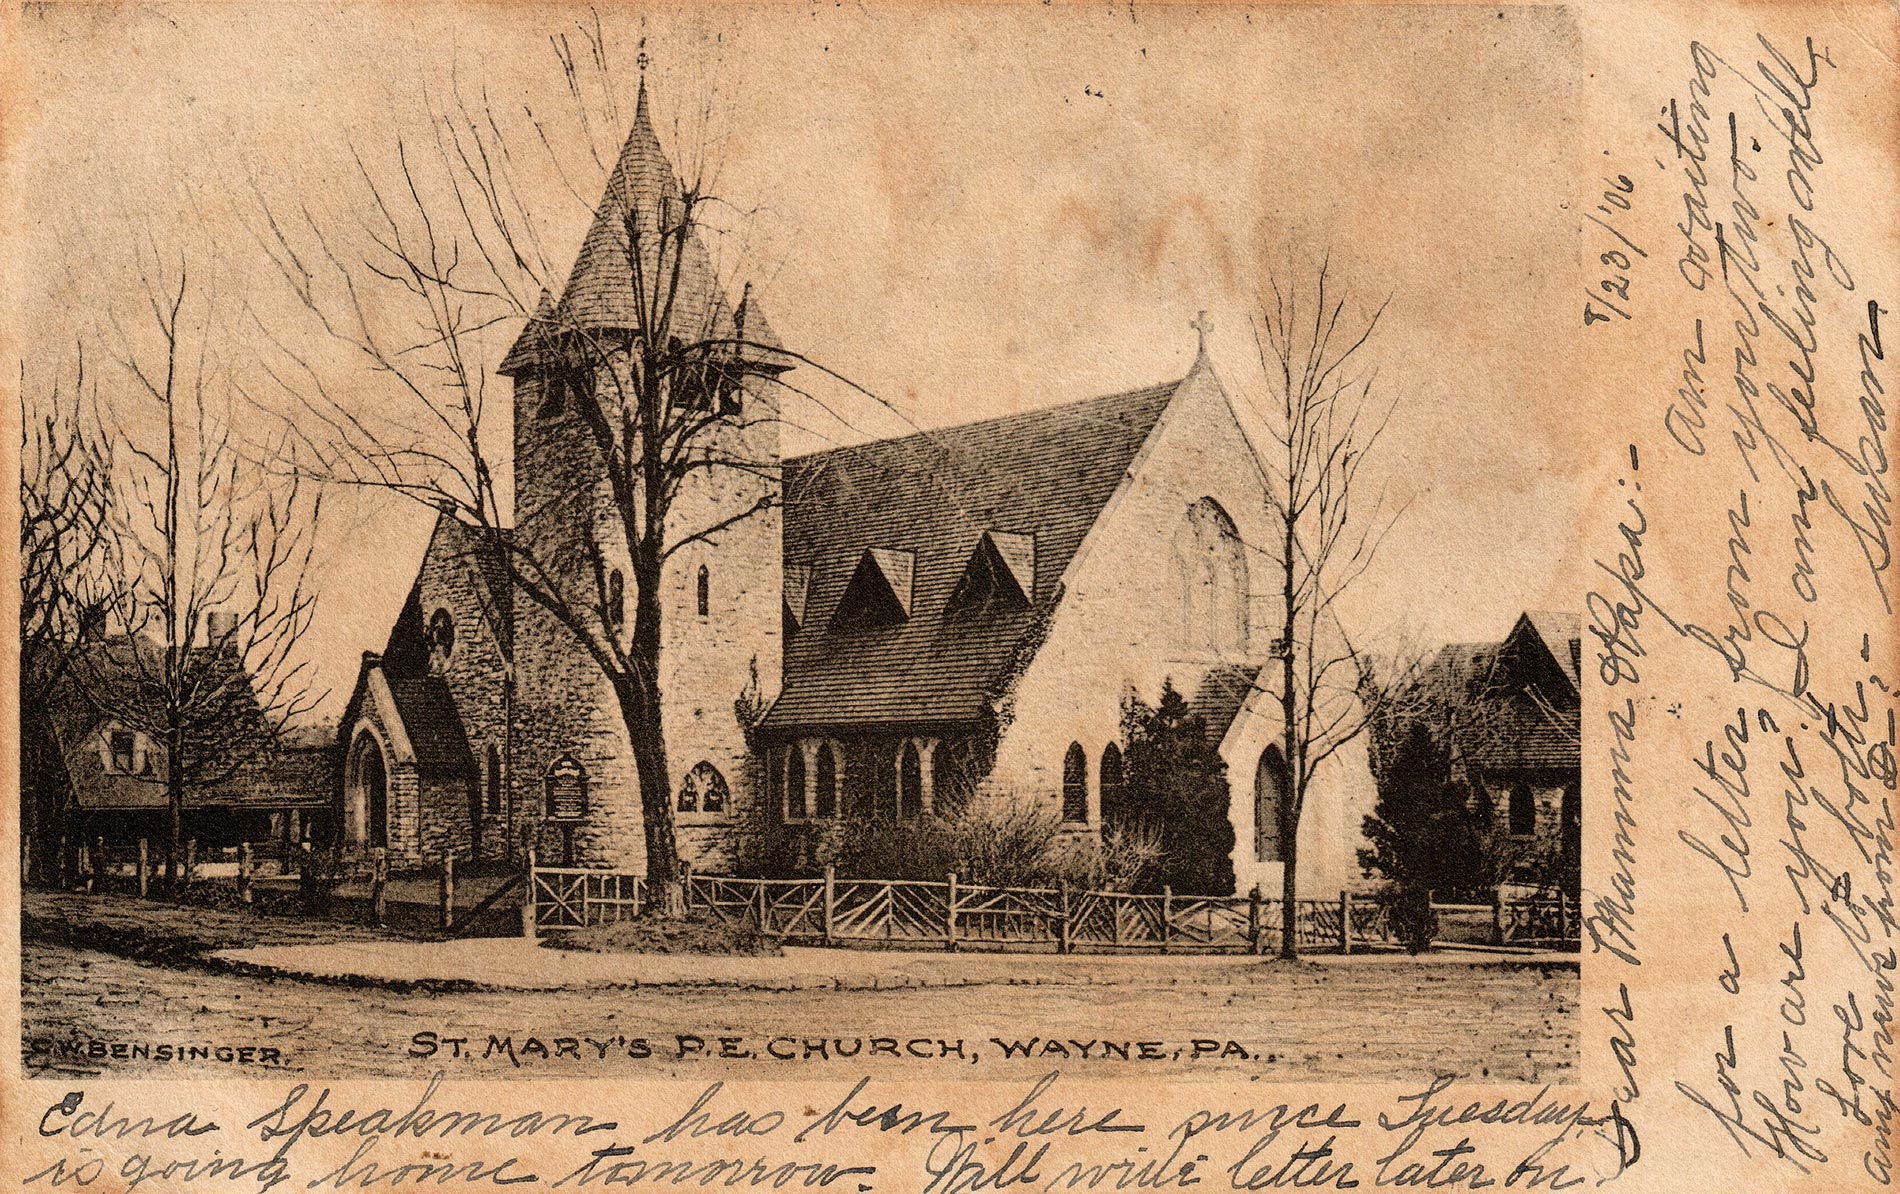 C.W. BENSINGER.
ST. MARY'S P.E. CHURCH, WAYNE, PA.
/23/'06
Dear Mamma & Papa:-
Am waiting
for a letter from you two.
How are you? I am feeling well,
Love to both:- Susan
any news home?
Edna Speakman has been here since Tuesday,
is going home tomorrow. Will write letter later on.